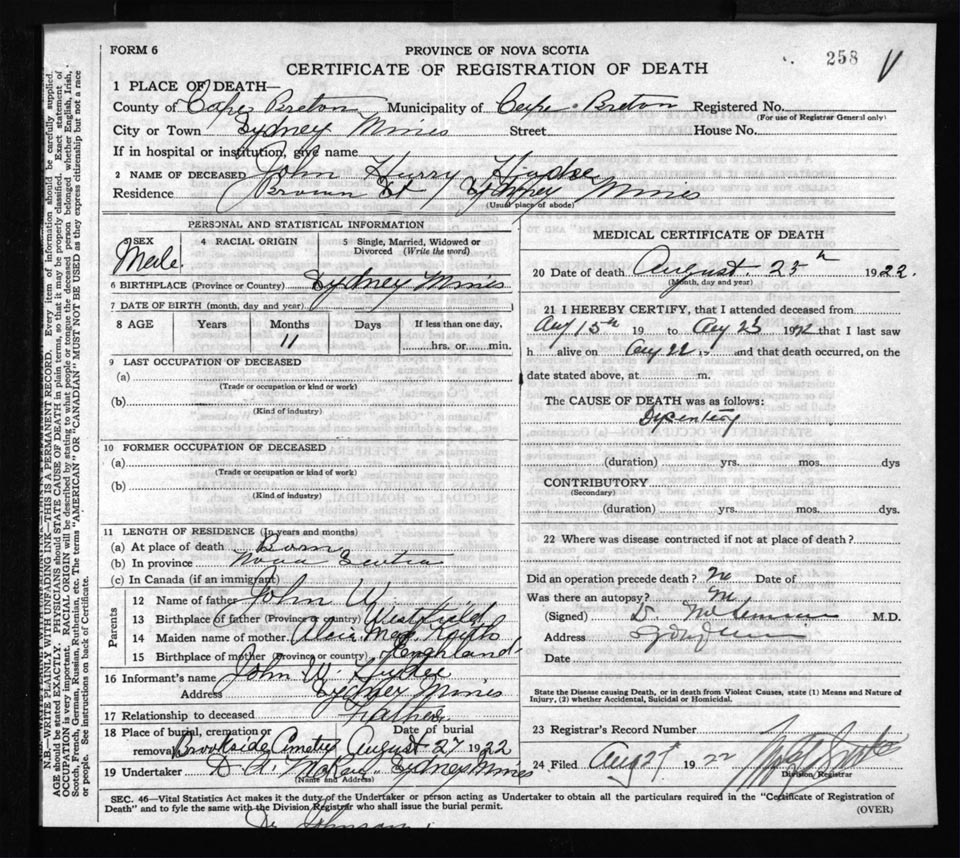 258
V
FORM 6
PROVINCE OF NOVA SCOTIA
CERTIFICATE OF REGISTRATION OF DEATH
1 PLACE OF DEATH—
County of Cape Breton Municipality of Cape Breton Registered No.
(For use of Registrar General only)
City or Town Sydney Mines Street House No.
If in hospital or institution, give name
2 NAME OF DECEASED John Harry
Residence Brown St Sydney Mines
(Usual place of abode)
PERSONAL AND STATISTICAL INFORMATION
3 SEX 4 RACIAL ORIGIN 5 Single, Married, Widowed or Divorced (Write the word)
Male
6 BIRTHPLACE (Province or Country) Sydney Mines
7 DATE OF BIRTH (month, day and year)
8 AGE Years Months Days If less than one day,
11 hrs. or min.
9 LAST OCCUPATION OF DECEASED
(a)
(Trade or occupation or kind or work)
(b)
(Kind of industry)
10 FORMER OCCUPATION OF DECEASED
(a)
(Trade or occupation or kind of work)
(b)
(Kind of industry)
11 LENGTH OF RESIDENCE (In years and months)
(a) At place of death Born
(b) In province Nova Scotia
(c) In Canada (if an immigrant)
Parents
12 Name of father John W.
13 Birthplace of father (Province or Country) Westfield
14 Maiden name of mother May Keith
15 Birthplace of mother (Province or country) England
16 Informant's name John W.
Address Sydney Mines
17 Relationship to deceased Father
18 Place of burial, cremation or removal Date of burial
Brookside Cemetery August 27 1922
19 Undertaker D. A. McKay Sydney Mines
(Name and Address)
MEDICAL CERTIFICATE OF DEATH
20 Date of death August 25th 1922.
(Month, day and year)
21 I HEREBY CERTIFY, that I attended deceased from
Aug 15th 19 to Aug 25 1922 that I last saw
h alive on Aug 22 19 and that death occurred, on the
date stated above, at m.
The CAUSE OF DEATH was as follows:
Dysentery
(duration) yrs. mos. dys
CONTRIBUTORY
(Secondary)
(duration) yrs. mos. dys.
22 Where was disease contracted if not at place of death?
Did an operation precede death? no Date of
Was there an autopsy?
(Signed) M.D.
Address
Date
State the Disease causing Death, or in death from Violent Causes, state (1) Means and Nature of
Injury, (2) whether Accidental, Suicidal or Homicidal.
23 Registrar's Record Number
24 Filed Aug 1922
Division Registrar
SEC. 46—Vital Statistics Act makes it the duty of the Undertaker or person acting as Undertaker to obtain all the particulars required in the "Certificate of Registration of
Death" and to fyle the same with the Division Registrar who shall issue the burial permit.
(OVER)
Dr Johnson
N.B.—WRITE PLAINLY WITH UNFADING INK—THIS IS A PERMANENT RECORD. Every item of information should be carefully supplied.
AGE should be stated EXACTLY. PHYSICIANS should STATE CAUSE OF DEATH in plain terms, so that it may be properly classified. Exact statement of
OCCUPATION is very important. RACIAL ORIGIN will be described by stating to what people or tongue the deceased person belonged, whether English, Irish,
Scotch, French, German, Russian, Ruthenian, etc. The terms "AMERICAN" OR "CANADIAN" MUST NOT BE USED as they express citizenship but not a race
or people. See Instructions on back of Certificate.